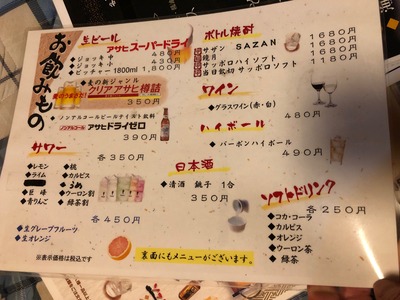 お飲みもの
生ビール
アサヒスーパードライ
◆ジョッキ 中 480円
◆ジョッキ 小 430円
◆ピッチャー 1800ml 1,800円
麦の新ジャンル
クリアアサヒ樽詰
350円
ノンアルコールビールテイスト飲料
ノンアルコール アサヒドライゼロ
390円
サワー
各350円
◆レモン ◆桃
◆ライム ◆カルピス
◆うめ
◆巨峰 ◆ウーロン割
◆青りんご ◆緑茶割
各450円
◆生グレープフルーツ
◆生オレンジ
※表示価格は税込です
ボトル焼酎
サザン SAZAN 1680円
鏡月 1680円
サッポロハイソフト 1680円
当日飲切サッポロソフト 1180円
ワイン
◆グラスワイン(赤・白) 480円
ハイボール
◆バーボンハイボール 490円
日本酒
◆清酒 銚子 1合
350円
ソフトドリンク
各250円
◆コカ・コーラ
◆カルピス
◆オレンジ
◆ウーロン茶
◆緑茶
裏面にもメニューがございます。